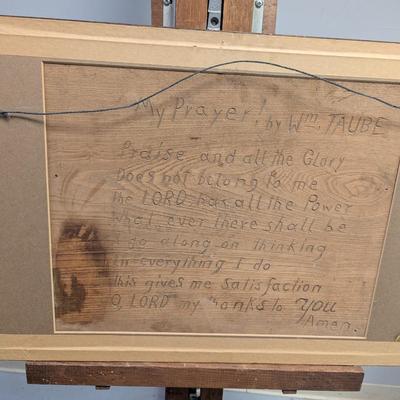 My Prayer! by Wm. TAUBE
Praise and all the Glory
Does not belong to me
the LORD has all the Power
What ever there shall be
I go along on thinking
in everything I do
this gives me satisfaction
O, LORD my thanks to YOU
Amen.